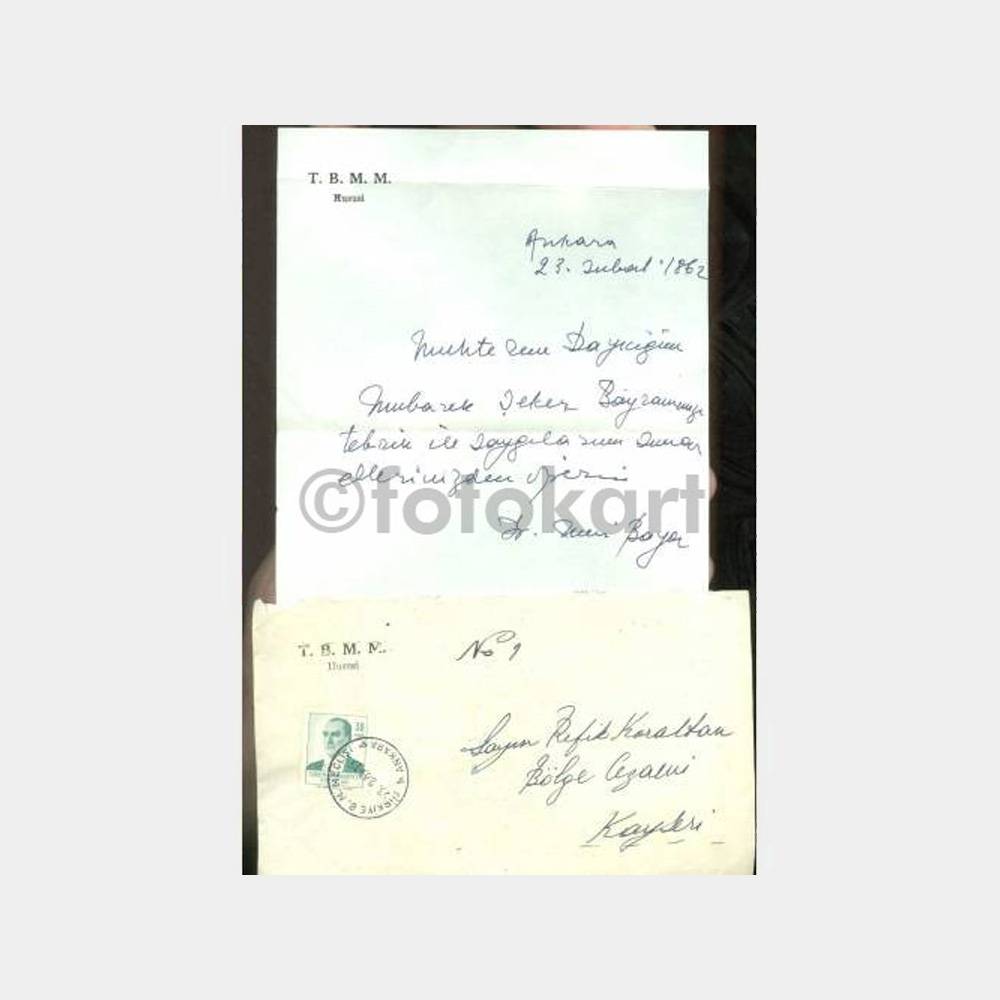 T. B. M. M.
Hususi
Ankara
23. Şubat 1962
Muhterem Dayıcığım
Mubarek Şeker Bayramınızı
tebrik ile saygılarımı sunar
ellerinizden öperim
Dr.
©fotokart
T. B. M. M.
Hususi
No 1
Sayın Refik Koraltan
Bölge Cezaevi
Kayseri
TÜRKİYE B. M. MECLİSİ ANKARA